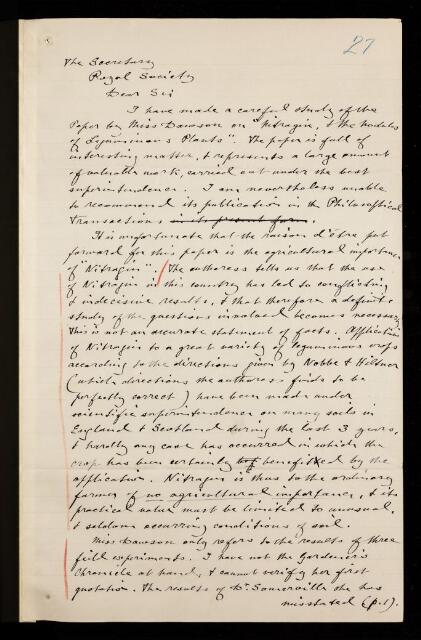 27
The Secretary
Royal Society
Dear Sir
I have made a careful study of the
Paper by Miss Dawson on "Nitragin, & the nodules
of Leguminous Plants". The paper is full of
interesting matter, & represents a large amount
of valuable work, carried out under the best
superintendence. I am nevertheless unable
to recommend its publication in the Philosophical
Transactions in its present form.
It is unfortunate that the raison d'être put
forward for this paper is the agricultural importance
of "Nitragin". The authoress tells us that the use
of Nitragin in this country has led to conflicting
& indecisive results, & that therefore a definite
study of the questions involved becomes necessary.
This is not an accurate statement of facts. Applications
of Nitragin to a great variety of leguminous crops
according to the directions given by Nobbe & Hiltner
(which directions the authoress finds to be
perfectly correct) have been made under
scientific superintendence on many soils in
England & Scotland during the last 3 years,
& hardly any case has occurred in which the
crop has been certainly benefited by the
application. Nitragin is thus to the ordinary
farmer of no agricultural importance, & its
practical value must be limited to unusual,
& seldom occurring conditions of soil.
Miss Dawson only refers to the results of three
field experiments. I have not the Gardener's
Chronicle at hand, & cannot verify her first
quotation. The results of Dr Somerville she has
misstated (p.1).